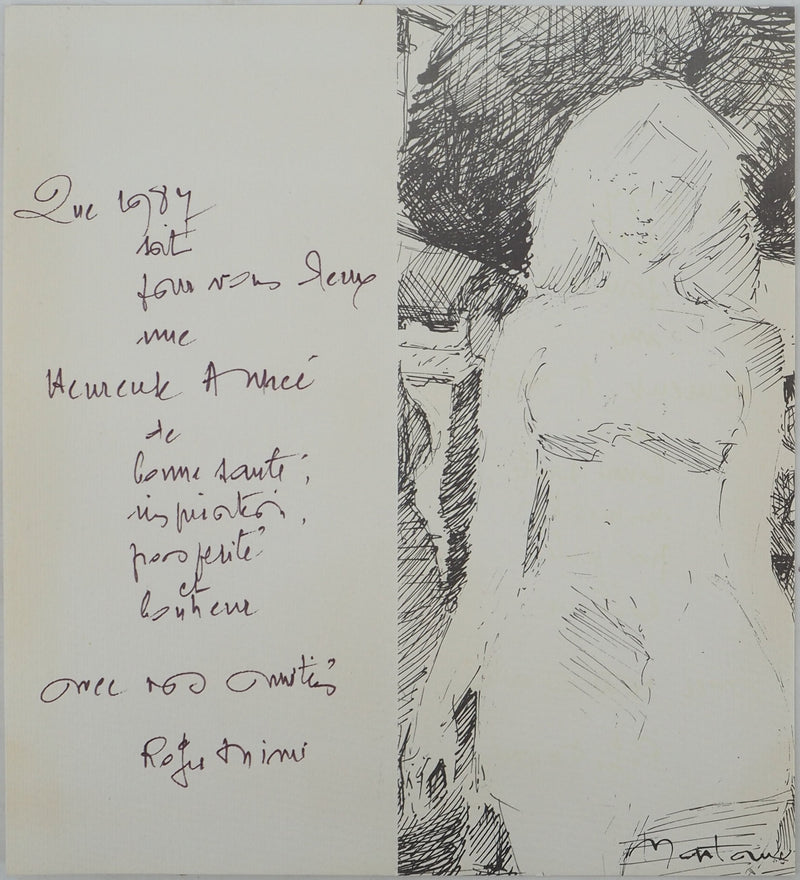 Que 1987
soit
pour vous deux
une
Heureuse Année
de
bonne santé,
inspiration,
prospérité
et
bonheur
avec nos amitiés
Roger Mimi
Montané